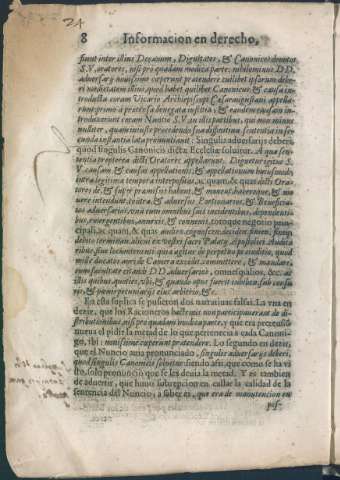 24
8 Informacion en derecho,
fiunt inter illius Decanum, Dignitates, & Canonicos dumtaxat
S.V. oratores, nisi pro quadam modica parte: nihilominus DD.
adversarij nouissime coeperunt prætendere cuilibet ipsorum deberi
medietatem illius, quod habet quilibet Canonicus, & causa in-
troducta coram Vicario Archiepiscopi Cæsaraugustani appella-
runt primò à prætensa denegata iustitia, & eandem causam in-
troduxerunt coram Nuntio S.V. in illis partibus, qui non minus
nulliter, quam iniuste procedendo sua definitiua sententia in se-
cunda instantia lata pronuntiauit: Singulis aduersarijs deberi
quod singulis Canonicis dicta Ecclesia soluitur. A qua sen-
tentia pro parte dicti Oratores appellarunt. Dignetur igitur S.
V. causam, & causas appellationis, & appellationum huiusmodi,
intra legitima tempora interpositas, ac quam, & quas dicti Orato
res de, & super præmissis habent, & mouent, habereque, & mo
uere intendunt, contra, & aduersus Portionarios, & Beneficia-
tos aduersarios, vna cum omnibus suis incidentibus, dependenti-
bus, emergentibus, annexis, & connexis, totoque negotio prin-
cipali, ac quam, & quas audien. cognoscen. deciden. finien. fineque
debito terminan. alicui ex vestri sacri Palatij Apostolici Audito
ribus, siue locumtenenti quia agitur de perpetuo præiuditio, quod
mille ducatos auri de Camera excedit, committere, & mandare,
cum facultate citandi DD. aduersarios, omnesque alios, &c. ac
illis quibus, quoties, vbi, & quando opus fuerit inhiben. sub censu-
ris, & pœnis pecuniarijs eius arbitrio, &c.
En esta suplica se pusieron dos narratiuas falsas. La vna en
dezir, que los Racioneros hasta aqui non participauerant de di-
stributionibus, nisi pro quadam modica parte, y que era pretension
nueua el pidir la metad de lo que pertenecia a cada Canoni-
go, ibi: nouissime cœperunt prætendere. Lo segundo en dezir,
que el Nuncio auia pronunciado, singulis aduersarijs deberi,
quod singulis Canonicis soluitur: siendo assi, que como se ha vi
sto, solo pronunció que se les deuia la metad. Y es tambien
de aduertir, que huuo subrepcion en callar la calidad de la
sentencia del Nuncio, a saber es, que era de manutencion en
pos-